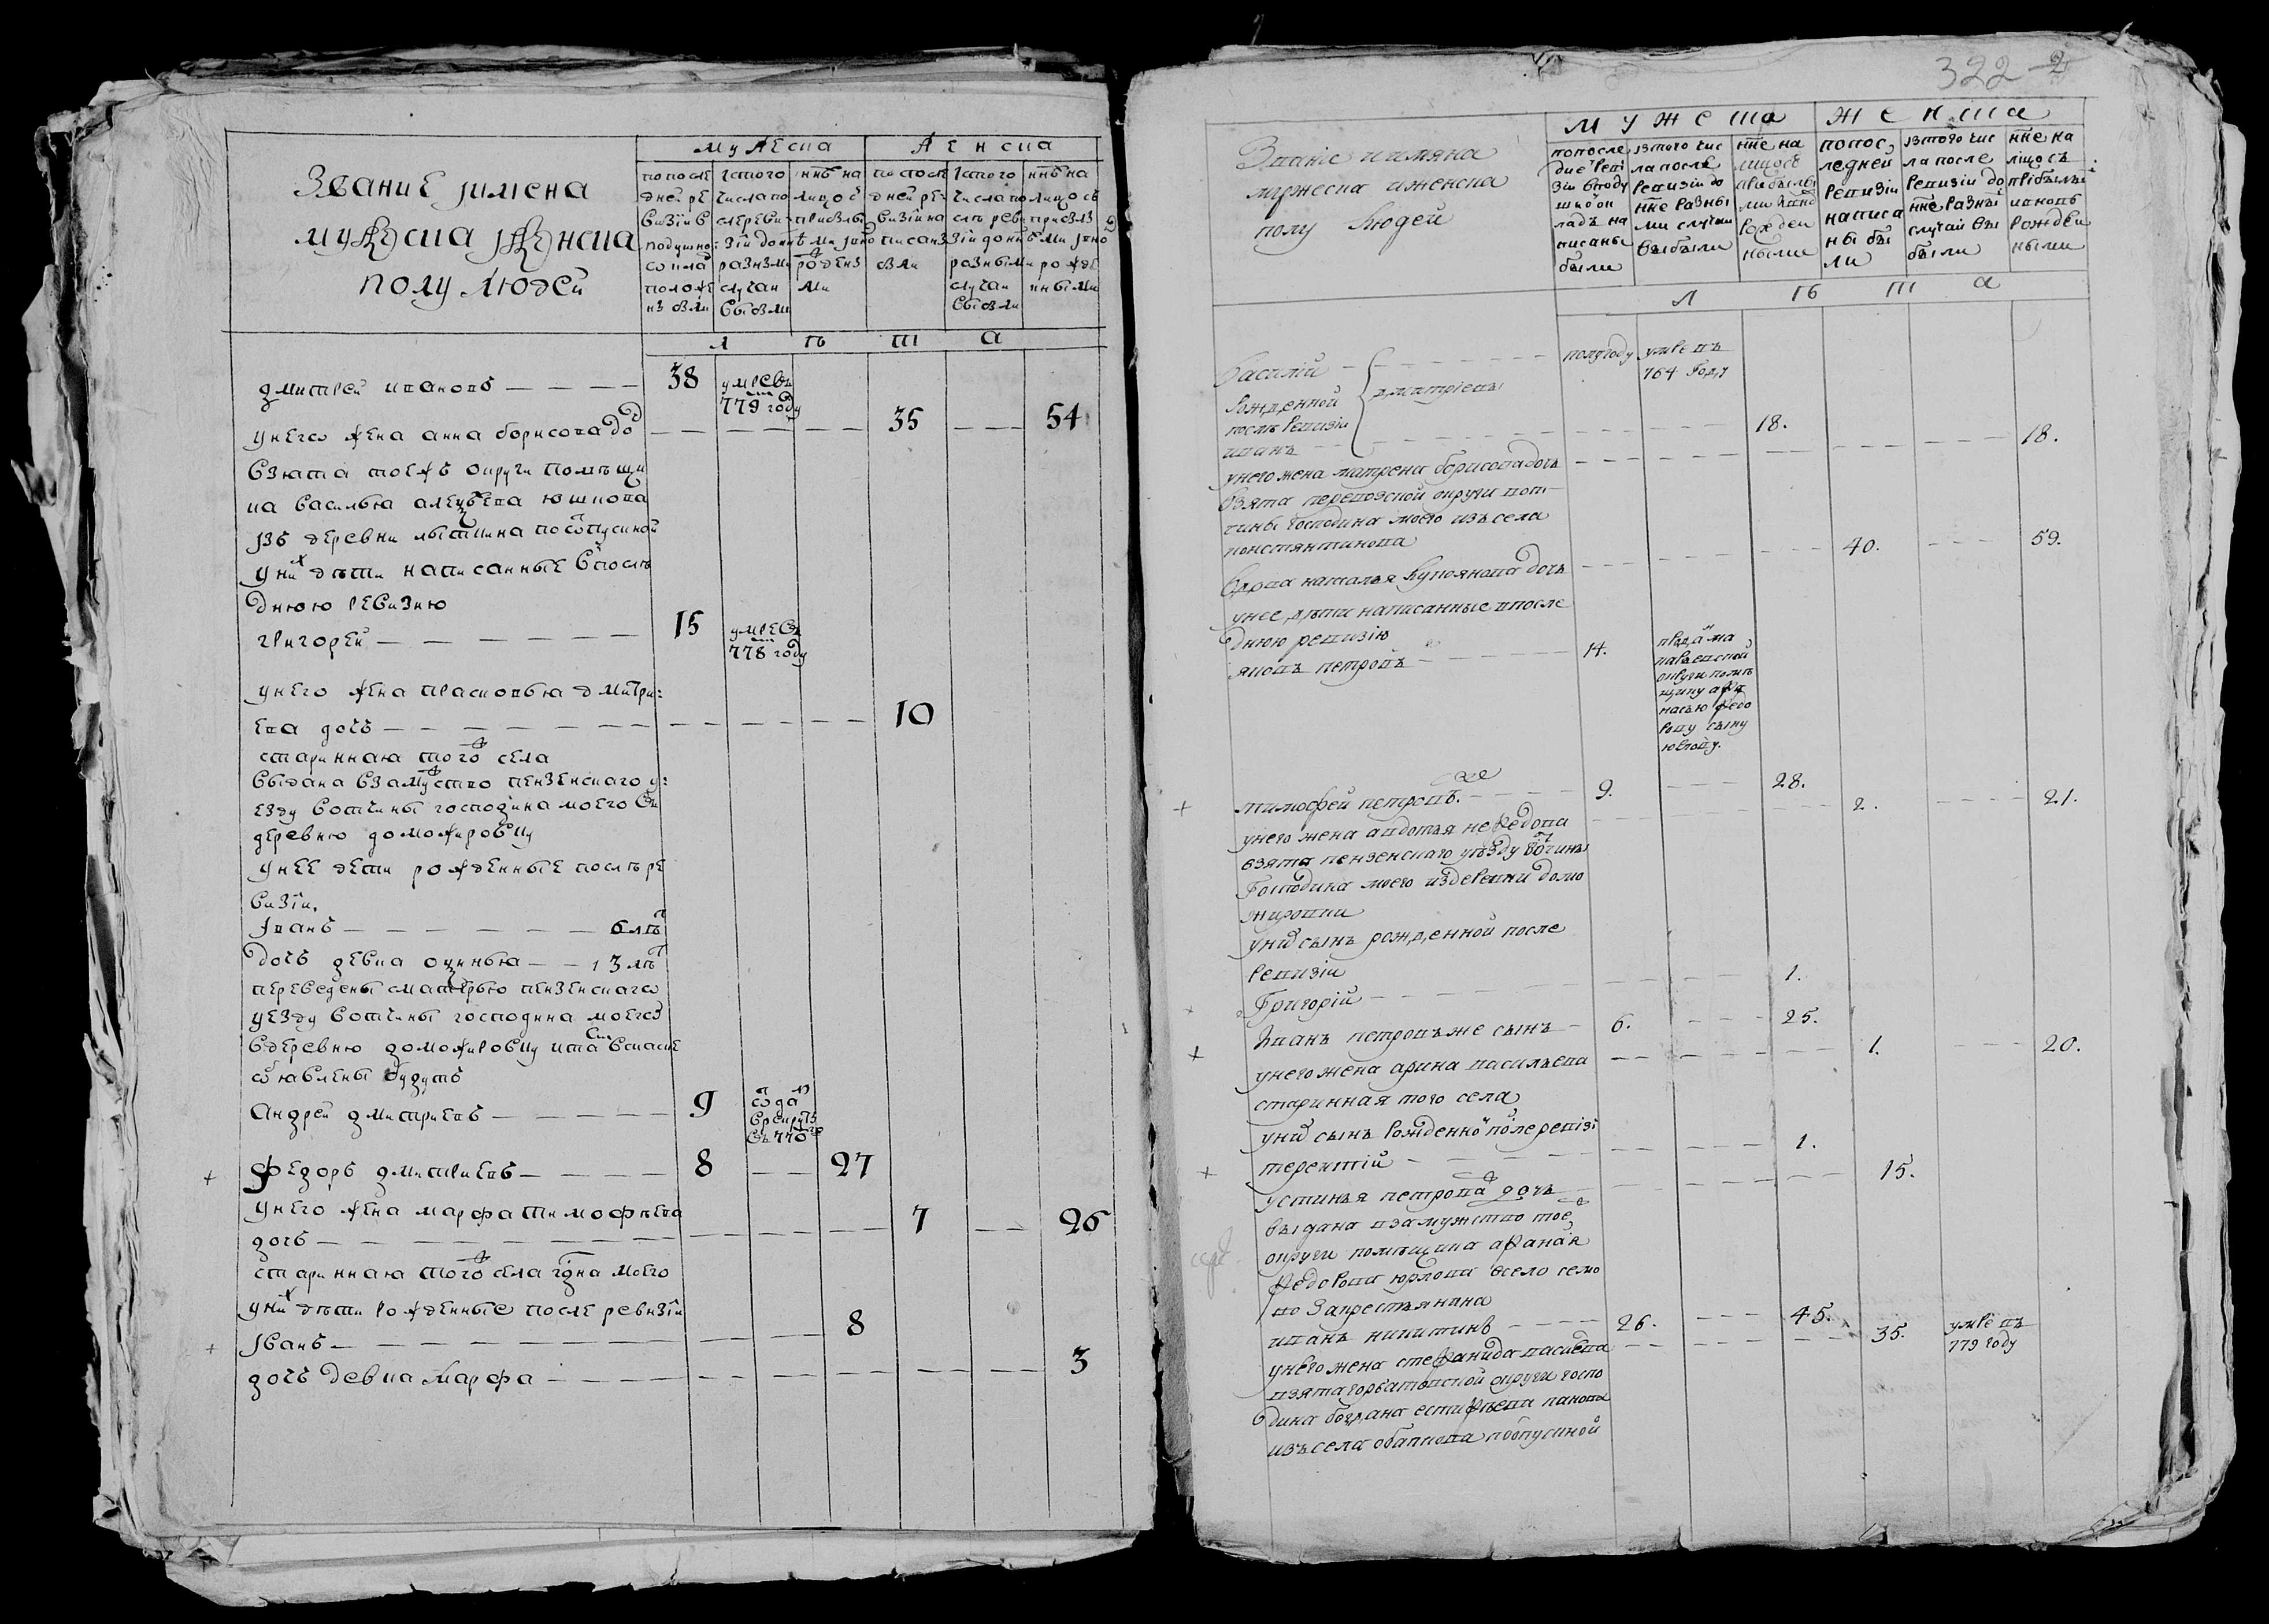 Звание и имена
мужеска и женска
полу людей
мужеска
женска
по после
дней ре
визии в
подушно
м окла
положе
нъ были
ис того
числа по
сле реви
зии до ннѣ
разными
случаи
выбыли
ннѣ на
лицо с
прибылы
ми и вно
рожденъ
ми
по после
дней ре
визии на
писаны
были
ис того
числа по
слѣ реви
зии до ннѣ
разными
случаи
выбыли
ннѣ на
лицо съ
прибылы
ми и вно
рожде
нными
лѣта
Дмитрей Ивановъ 38 умре въ
779 году
у него жена Анна Борисова до 35 54
взята тоежъ округи помѣщи
ка Василья
из деревни по отпускной
у них дѣти написанные в послѣ
днюю ревизию
Григорей 15 умре въ
778 году
у него жена Прасковья Дмитри
ева дочь 10
стариннаю того села
выдана в замуство пензенскаго у
езду вотчины господина моего в
деревню Доможировку
у нее дети рожденные послѣ ре
визии.
Иванъ 6 лѣт
дочь девка 13 лѣт
переведены с матерью пензенскаго
уезду вотчины господина моего
в деревню Доможировку и там в скаске
объявлены будутъ
Андрей Дмитриевъ 9 отдан
в рекруты
въ 770 го
Федоръ Дмитриевъ 8 27
у него жена Марфа Тимофѣева
дочь 7 26
стариннаю того села гдна моего
у них дѣти рожденные после ревизии
Иванъ 8
дочь девка Марфа 3
322
2
Звание и имяна
мужеска и женска
полу людей
мужеска
женска
по после
дней реви
зии в поду
шной ок
ладъ на
писаны
были
из того чис
ла послѣ
ревизии до
нне разны
ми случаи
выбыли
нне на
лицо съ
прибылы
ми и внов
рожден
ными
по пос
ледней
ревизии
написа
ны бы
ли
из того чис
ла после
ревизии до
нне разны
случаи вы
были
нне на
лицо съ
прибылы
и вновь
рожден
ными
лѣта
Василий полугоду умре въ
764 году
рожденной Дмитриевы
послѣ ревизии
Иванъ 18.
у него жена Матрена Борисова дочь 18.
взята округи вот
чины господина моего из села
Константинова
вдова Наталья дочь 40. 59.
у нее дѣти написанные в после
днюю ревизию
Яковъ Петровъ 14. продан
округи помѣ
щику Афа
насью Федо
рову сыну
Тимофей Петровъ 9. 28.
у него жена Авдотья Нефедова 2. 21.
взята пензенскаго уѣзду вотчины
господина моего из деревни Домо
жировки
у них сынъ рожденной после
ревизии
Григорий 1.
Иванъ Петровъ же сынъ 6. 25.
у него жена Арина Васильева 1. 20.
старинная того села
у них сынъ рожденной после ревизи
Терентий 1.
Устинья Петрова дочь 15.
выдана в замужство тое
округи помѣщика Афанася
Федорова в село
за крестьянина
Иванъ Никитинъ 26. 45.
у него жена Стефанида 35. умре въ
779 году
взята горбатовской округи госпо
дина
из села по отпускной